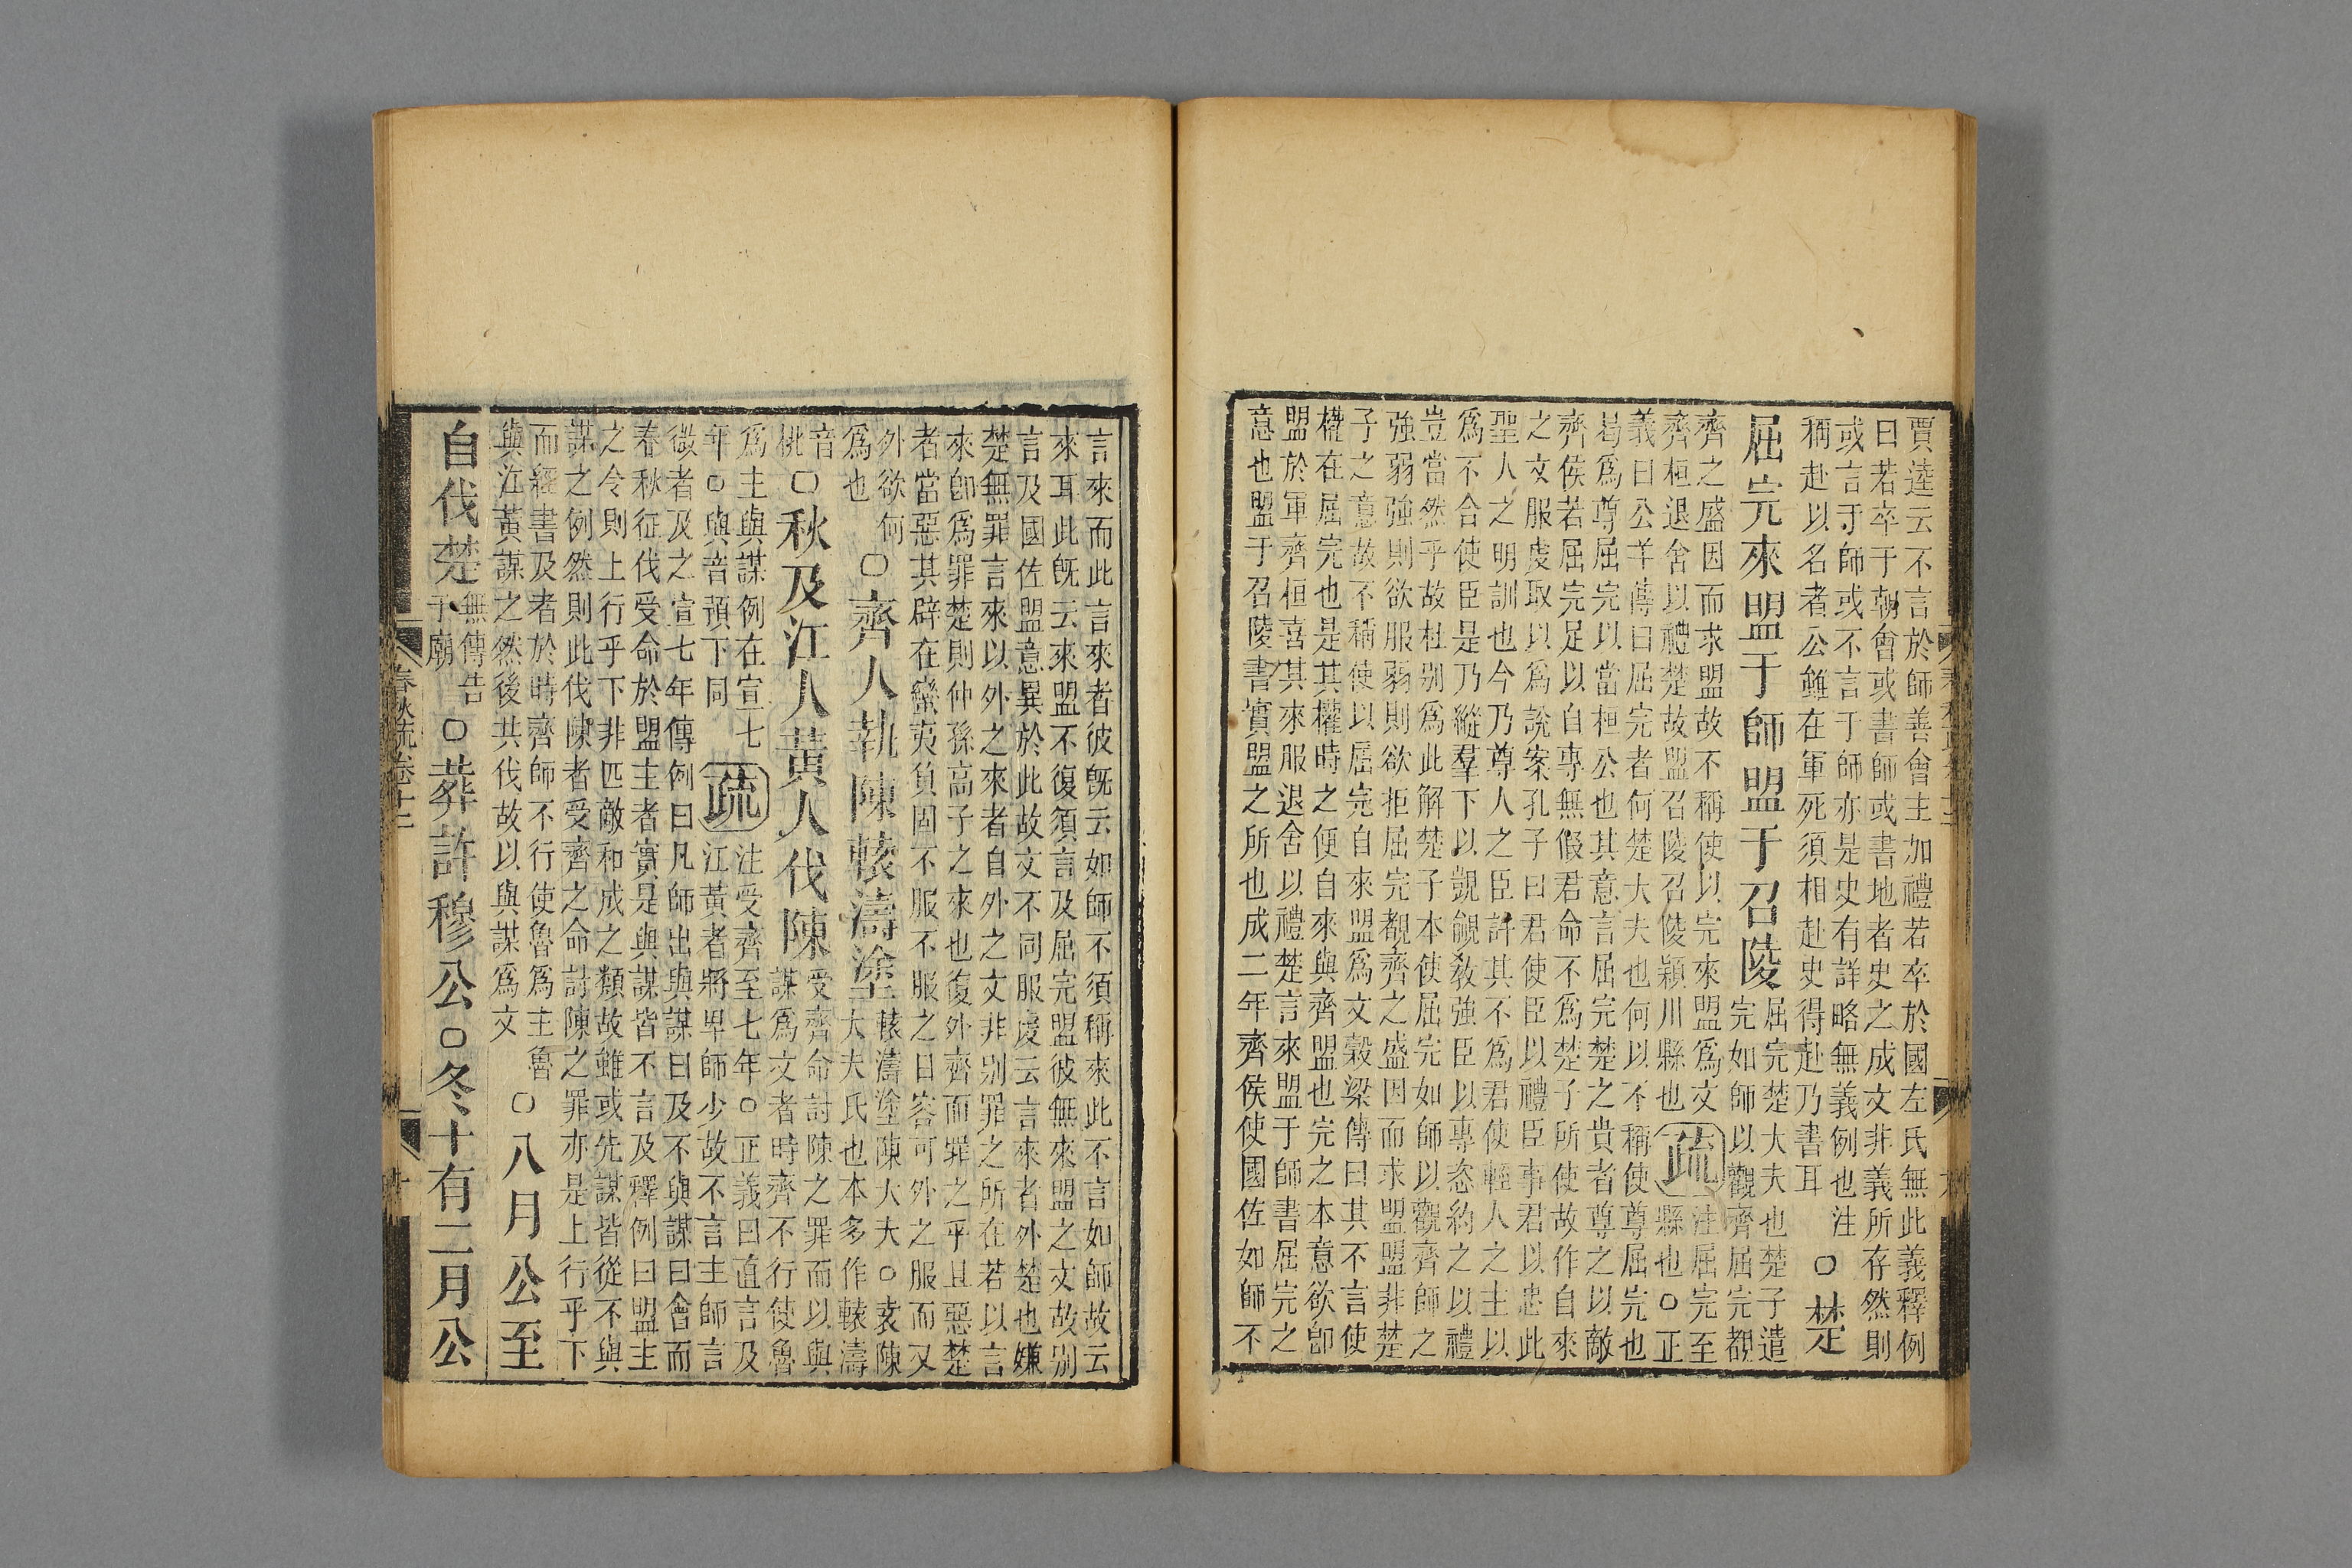 賈逵云不言於師善會主加禮若卒於國左氏無此義釋例
曰若卒于朝會或書師或書地者史之成文非義所存然則
或言于師或不言于師亦是史有詳略無義例也注
稱赴以名者公雖在軍死須相赴史得赴乃書耳
○楚
屈完來盟于師盟于召陵
屈完楚大夫也楚子遣
完如師以觀齊屈完覩
齊之盛因而求盟故不稱使以完來盟爲文
齊桓退舍以禮楚故盟召陵召陵潁川縣也
疏
注屈完至
縣也○正
義曰公羊傳曰屈完者何楚大夫也何以不稱使尊屈完也
曷爲尊屈完以當桓公也其意言屈完楚之貴者尊之以敵
齊侯若屈完足以自專無假君命不爲楚子所使故作自來
之文服虔取以爲說案孔子曰君使臣以禮臣事君以忠此
聖人之明訓也今乃尊人之臣許其不爲君使輕人之主以
爲不合使臣是乃縱羣下以覬覦敎強臣以專恣約之以禮
豈當然乎故杜别爲此解楚子本使屈完如師以觀齊師之
強弱強則欲服弱則欲拒屈完覩齊之盛因而求盟盟非楚
子之意故不稱使以屈完自來盟爲文穀梁傳曰其不言使
權在屈完也是其權時之便自來與齊盟也完之本意欲卽
盟於軍齊桓喜其來服退舍以禮楚言來盟于師書屈完之
意也盟于召陵書實盟之所也成二年齊侯使國佐如師不
言來而此言來者彼旣云如師不須稱來此不言如師故云
來耳此旣云來盟不復須言及屈完盟彼無來盟之文故别
言及國佐盟意異於此故文不同服虔云言來者外楚也嫌
楚無罪言來以外之來者自外之文非别罪之所在若以言
來卽爲罪楚則仲孫高子之來也復外齊而罪之乎且惡楚
者當惡其辟在蠻夷負固不服不服之日容可外之服而又
外欲何
爲也
○齊人執陳轅濤塗
轅濤塗陳大夫○袁陳
大夫氏也本多作轅濤
音
桃
○秋及江人黃人伐陳
受齊命討陳之罪而以與
謀爲文者時齊不行使魯
爲主與謀例在宣七
年○與音預下同
疏
注受齊至七年○正義曰直言及
江黃者將卑師少故不言主師言
微者及之宣七年傳例曰凡師出與謀曰及不與謀曰會而
春秋征伐受命於盟主者實是與謀皆不言及釋例曰盟主
之令則上行乎下非匹敵和成之類故雖或先謀皆從不與
謀之例然則此伐陳者受齊之命討陳之罪亦是上行乎下
而經書及者於時齊師不行使魯爲主魯
與江黃謀之然後共伐故以與謀爲文
○八月公至
自伐楚
無傳告
于廟
○葬許穆公○冬十有二月公
春秋疏卷十二
十